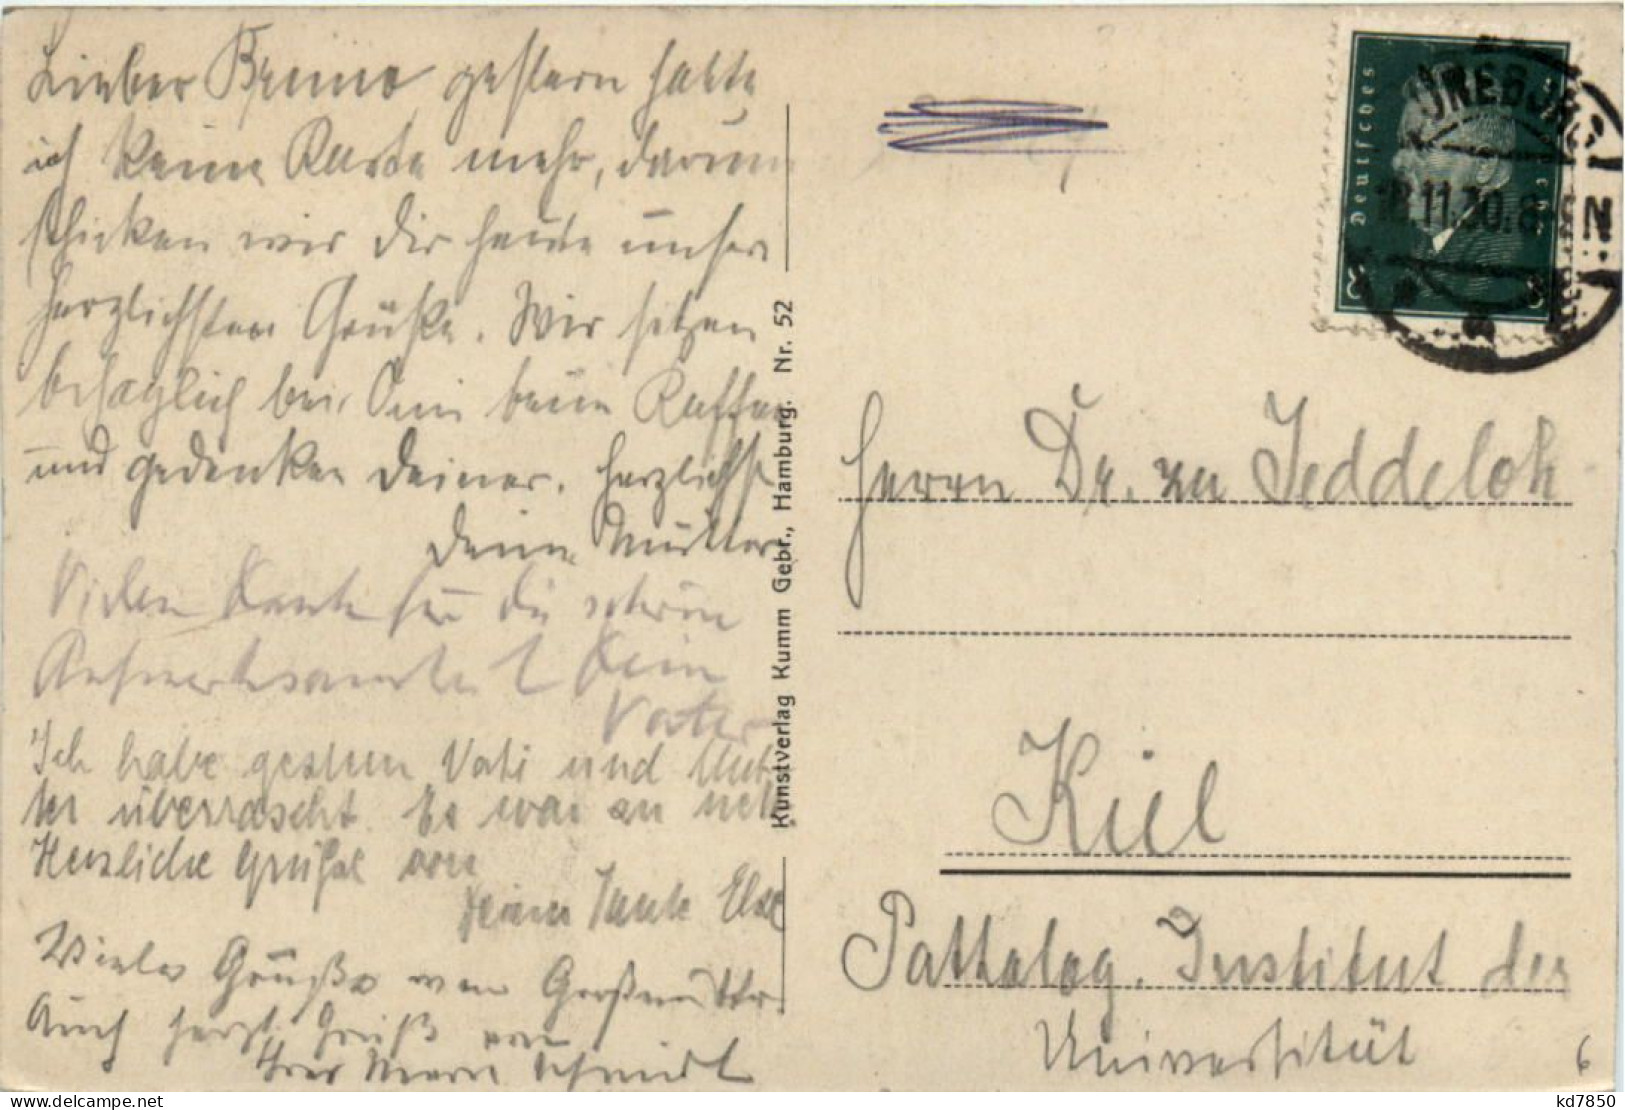 Lieber Bruno, gestern hatte
ich keine Karte mehr, darum
schicken wir Dir heute unsere
herzlichsten Grüße. Wir sitzen
behaglich bei Omi beim Kaffee
und gedenken Deiner. Herzlichst
Deine Mutter
Vielen Dank für die schöne
Aufmerksamkeit! Dein
Vater
Ich habe gestern Vati und Mut-
ter überrascht. Es war zu nett
Herzliche Grüße von
Deiner Tante Else
Viele Grüße von Großmutter.
Auch herzl. Gruß von
Schmidt
Kunstverlag Kumm Gebr., Hamburg. Nr. 52
Deutsches Reich
8 8
11.30.8
N
Herrn Dr. zu Jeddeloh
Kiel
Pathalog. Institut der
Universität
6
kd7850